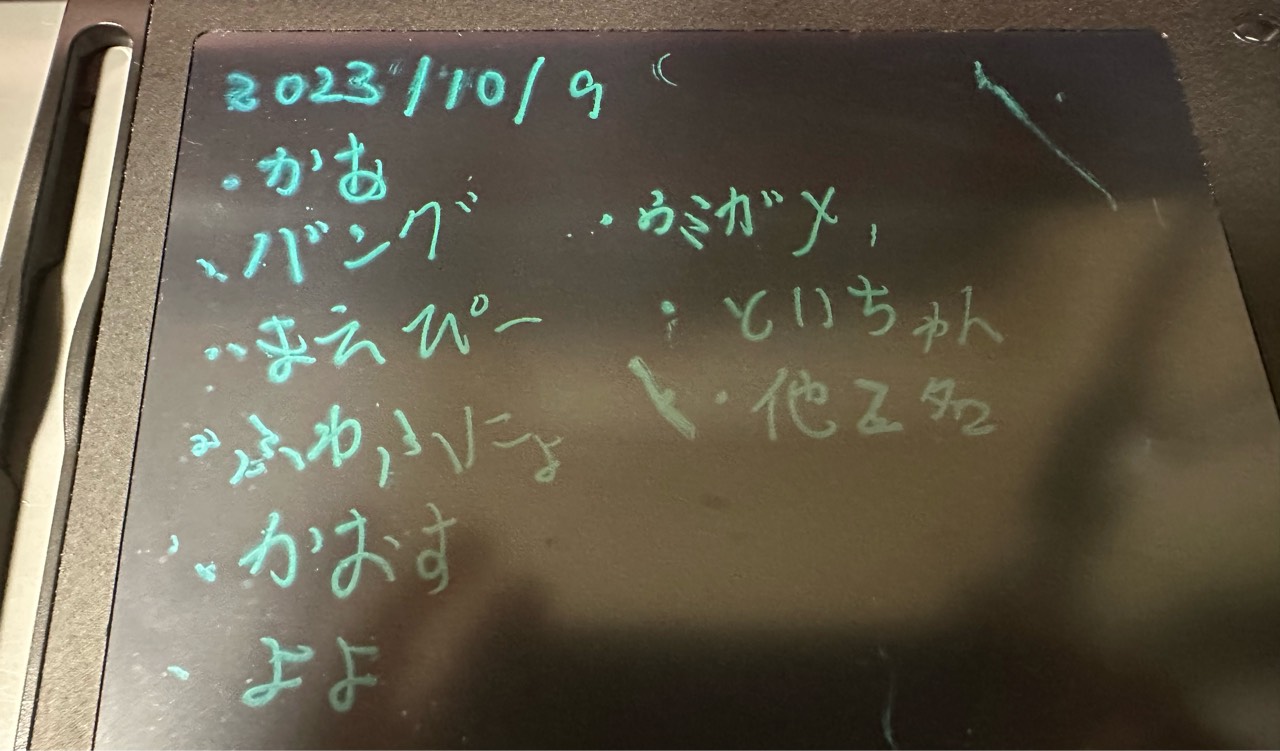 2023/10/9
・かあ
・バング
・まえぴー
・ふわふにょ
・かおす
・よよ
・ウミガメ
・といちゃん
・他2名